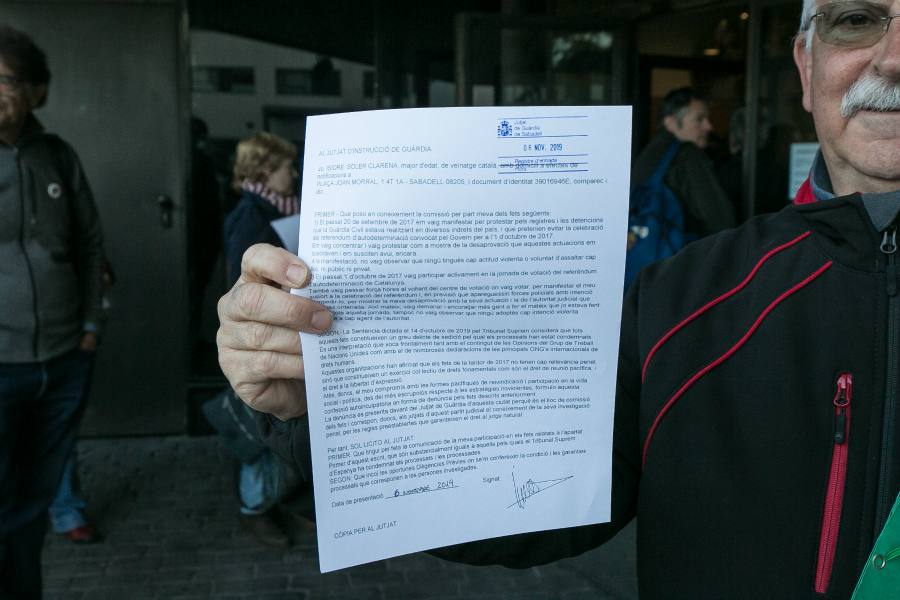 Jutjat
de Guàrdia
de Sabadell
06 NOV. 2019
Registre d'entrada
Hora:
AL JUTJAT D'INSTRUCCIÓ DE GUÀRDIA
Jo, ISIDRE SOLER CLARENA, major d'edat, de veïnatge català, amb domicili a efectes de
notificacions a
PLAÇA JOAN MORRAL, 1 4T 1A - SABADELL 08205, i document d'identitat 39016946E, comparec i
dic:
PRIMER.- Que poso en coneixement la comissió per part meva dels fets següents:
1) El passat 20 de setembre de 2017 em vaig manifestar per protestar pels registres i les detencions
que la Guàrdia Civil estava realitzant en diversos indrets del país, i que pretenien evitar la celebració
del referèndum d'autodeterminació convocat pel Govern per a l'1 d'octubre de 2017.
Em vaig concentrar i vaig protestar com a mostra de la desaprovació que aquestes actuacions em
suscitaven i em susciten avui, encara.
A la manifestació, no vaig observar que ningú tingués cap actitud violenta o voluntat d'assaltar cap
bé, ni públic ni privat.
2) El passat 1 d'octubre de 2017 vaig participar activament en la jornada de votació del referèndum
d'autodeterminació de Catalunya.
També vaig passar força hores al voltant del centre de votació on vaig votar, per manifestar el meu
suport a la celebració del referèndum i, en previsió que apareguessin forces policials amb intenció
d'impedir-lo, per mostrar la meva desaprovació amb la seva actuació i la de l'autoritat judicial que
ordenada. Així mateix, vaig demanar i encoratjar més gent a fer el mateix que jo estava fent
aquesta jornada, tampoc no vaig observar que ningú adoptés cap intenció violenta
a cap agent de l'autoritat.
SEGON.- La Sentència dictada el 14 d'octubre de 2019 pel Tribunal Suprem considera que
aquests fets constitueixen un greu delicte de sedició pel qual els processats han estat condemnats.
És una interpretació que xoca frontalment tant amb el contingut de les Opinions del Grup de Treball
de Nacions Unides com amb el de nombroses declaracions de les principals ONG's internacionals de
drets humans.
Aquestes organitzacions han afirmat que els fets de la tardor de 2017 no tenen cap rellevància penal,
sinó que constitueixen un exercici col·lectiu de drets fonamentals com són el dret de reunió pacífica, i
el dret a la llibertat d'expressió.
Més, doncs, el meu compromís amb les formes pacífiques de reivindicació i participació en la vida
social i política, des del més escrupolós respecte a les estratègies noviolentes, formulo aquesta
confessió autoinculpatòria en forma de denúncia pels fets descrits anteriorment.
La denúncia es presenta davant del Jutjat de Guàrdia d'aquesta ciutat perquè és el lloc de comissió
dels fets i correspon, doncs, als jutjats d'aquest partit judicial el coneixement de la seva investigació
penal, per les regles preestablertes que garanteixen el dret al jutge natural.
Per tant, SOL·LICITO AL JUTJAT:
PRIMER.- Que tingui per feta la comunicació de la meva participació en els fets relatats a l'apartat
Primer d'aquest escrit, que són substancialment iguals a aquells pels quals el Tribunal Suprem
d'Espanya ha condemnat els processats i les processades.
SEGON: Que incoï les oportunes Diligències Prèvies on se'm confereixin la condició i les garanties
processals que corresponen a les persones investigades.
Data de presentació 6 NOVEMBRE 2019 Signat:
CÒPIA PER AL JUTJAT